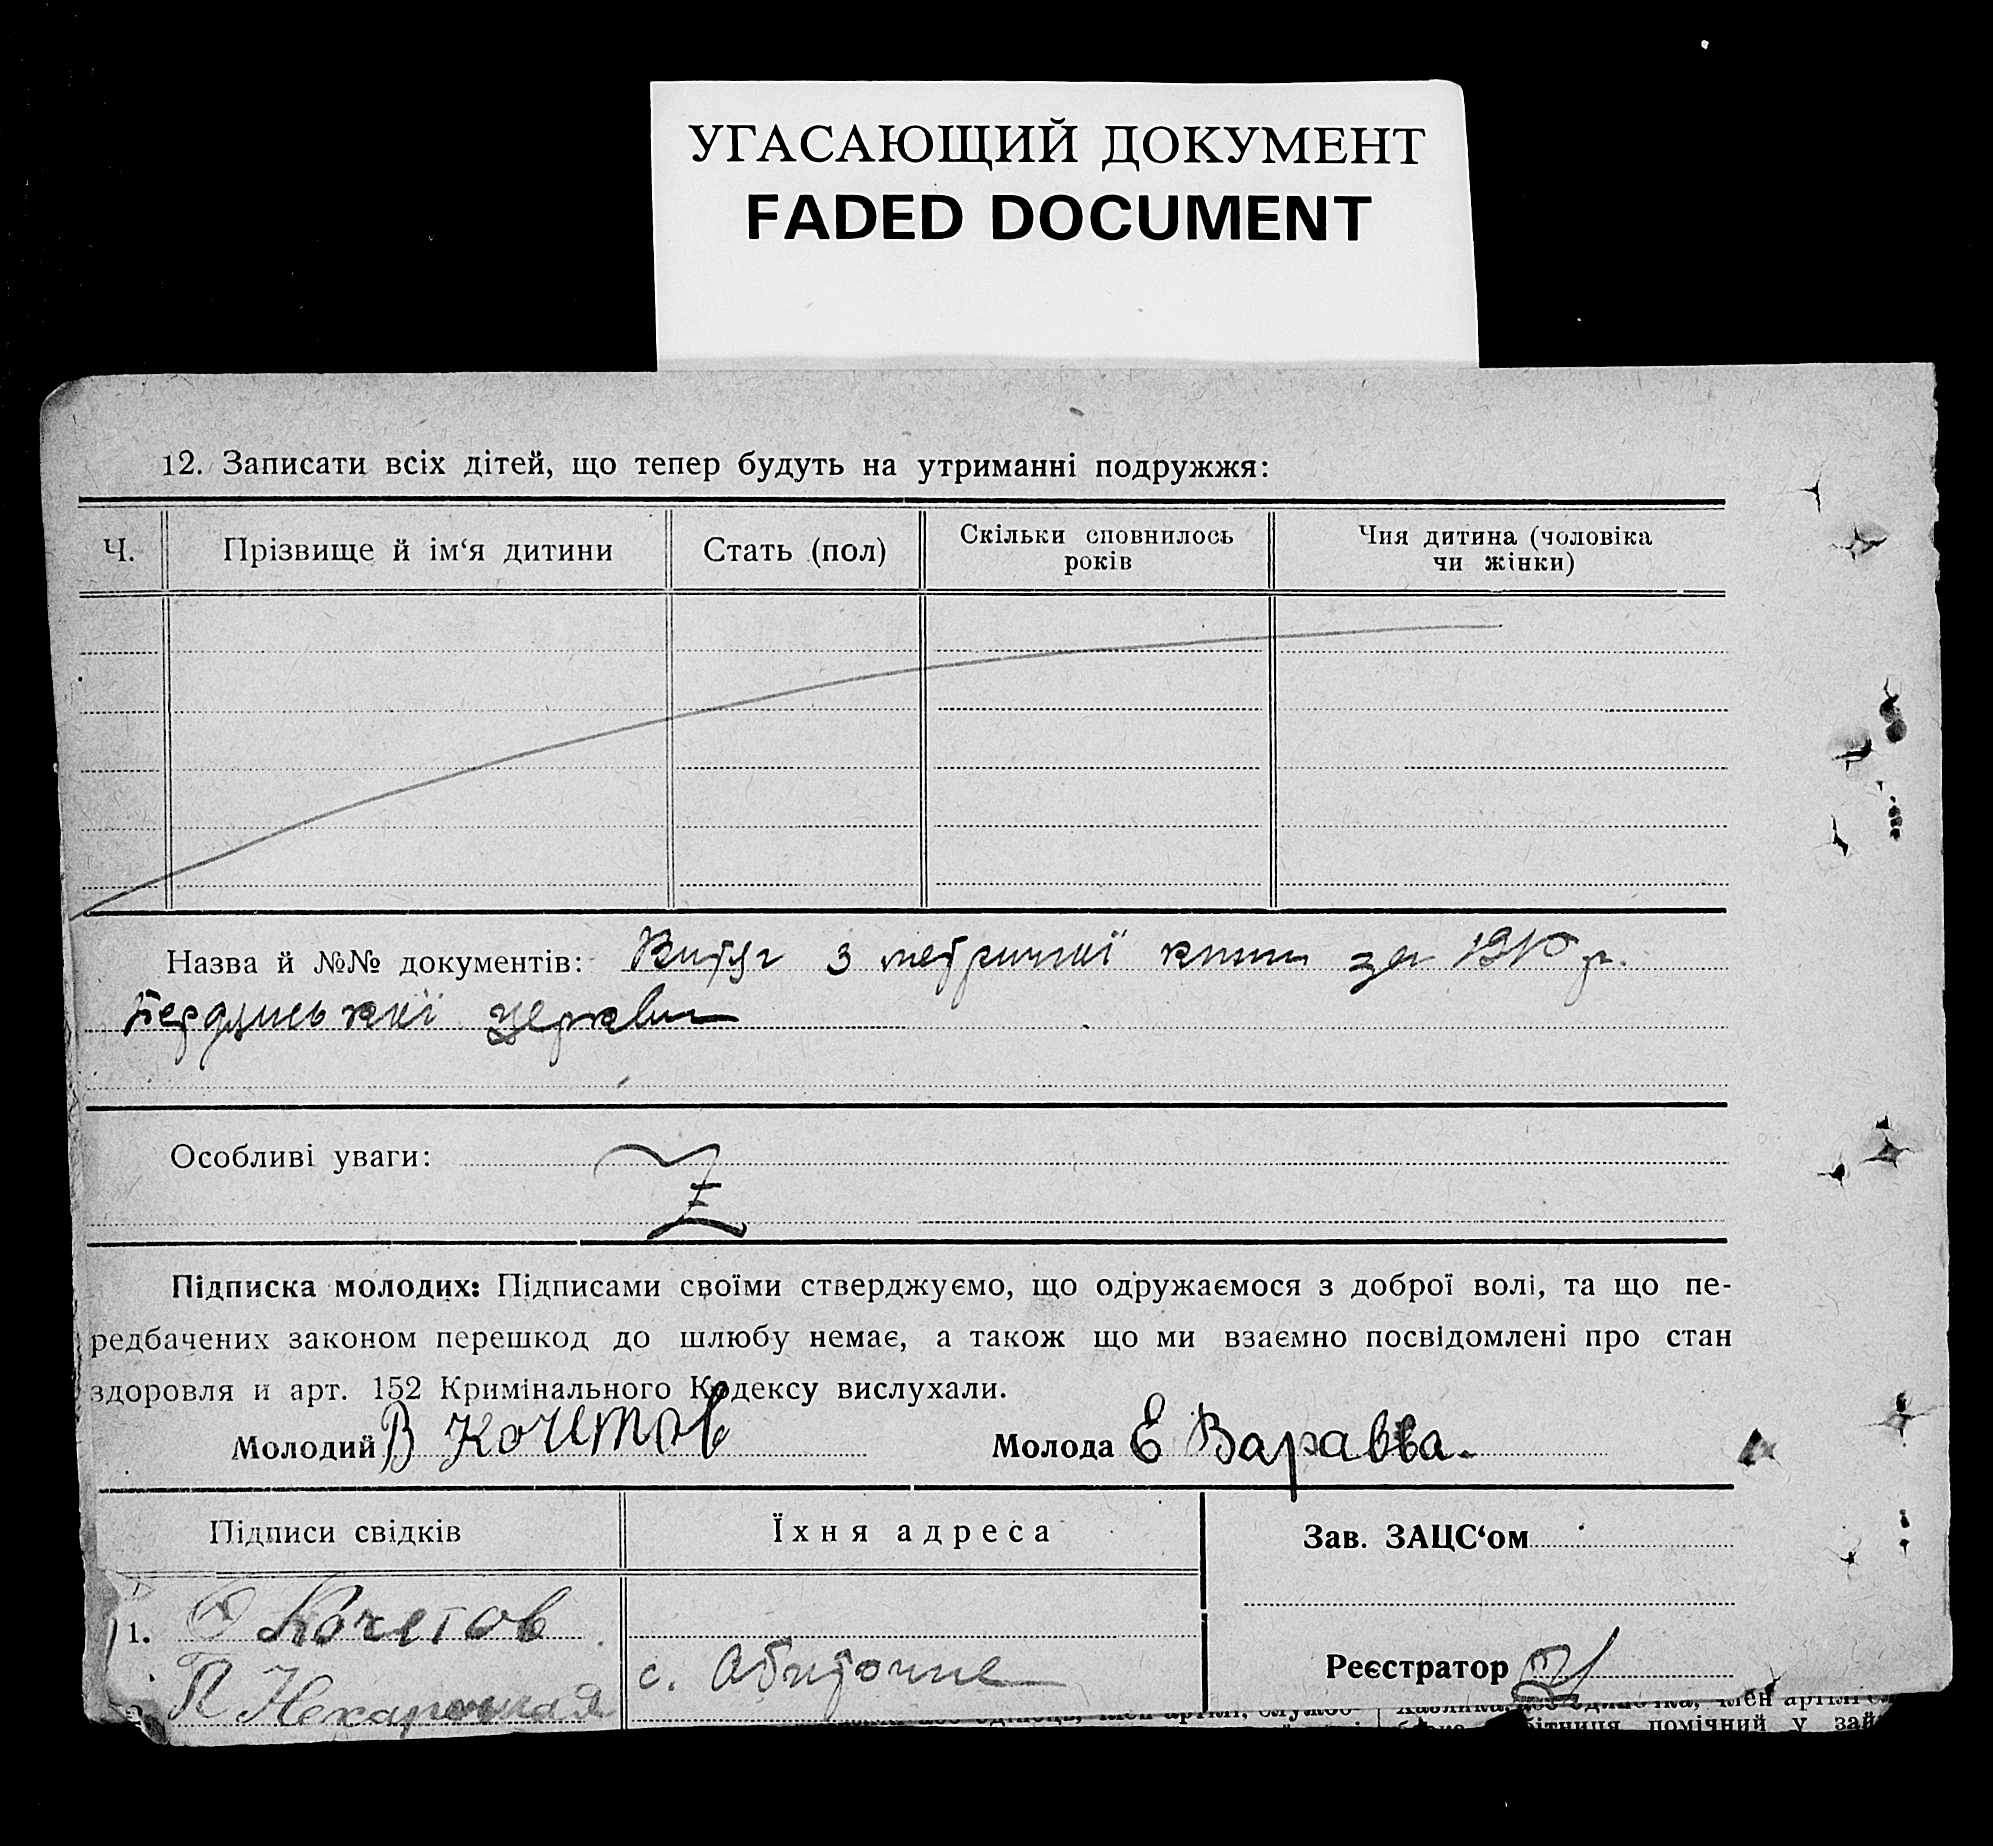 УГАСАЮЩИЙ ДОКУМЕНТ
FADED DOCUMENT
12. Записати всіх дітей, що тепер будуть на утриманні подружжя:
Ч.
Прізвище й ім‘я дитини
Стать (пол)
Скільки сповнилось
років
Чия дитина (чоловіка
чи жінки)
Назва й №№ документів: Витяг з метричної книги за 1910 р.
церкви
Особливі уваги:
Підписка молодих: Підписами своїми стверджуємо, що одружаємося з доброї волі, та що пе-
редбачених законом перешкод до шлюбу немає, а також що ми взаємно посвідомлені про стан
здоровля и арт. 152 Кримінального Кодексу вислухали.
Молодий В Кочетов
Молода Е Варавва.
Підписи свідків
Їхня адреса
Зав. ЗАЦС‘ом
1. Кочетов
П
с. Обиточне
Реєстратор
помічний у